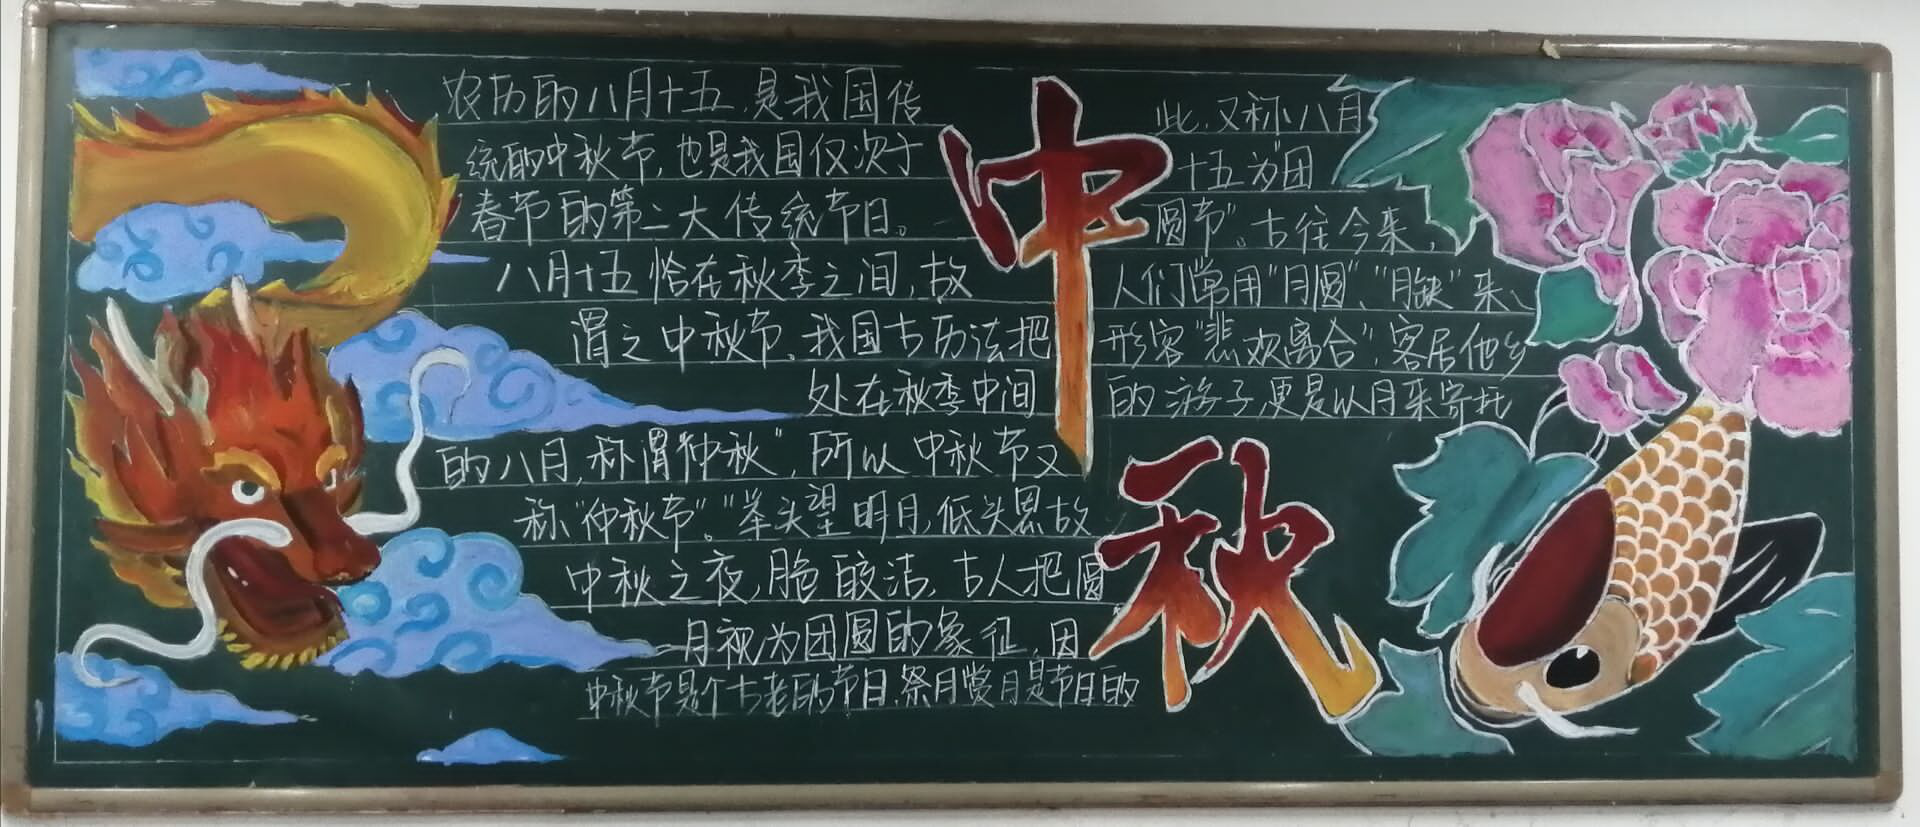 农历的八月十五,是我国传
统的中秋节,也是我国仅次于
春节的第二大传统节日。
八月十五恰在秋季之间,故
谓之中秋节。我国古历法把
处在秋季中间
的八月,称谓“仲秋”,所以中秋节又
称“仲秋节”。“举头望明月,低头思故
中秋之夜,脆皎洁,古人把圆
月视为团圆的象征,因
中秋节是个古老的节日,祭月赏月是节日的
中
秋
此,又称八月
十五为“团
圆节”。古往今来,
人们常用“月圆”、“月缺”来、
形容“悲欢离合”,客居他乡
的游子,更是以月来寄托